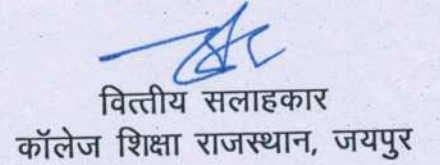 वित्तीय सलाहकार
कॉलेज शिक्षा राजस्थान, जयपुर